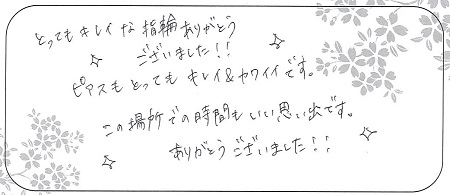 とってもキレイな指輪ありがとう
ございました!!
ピアスもとってもキレイ&カワイイです。
この場所での時間もいい思い出です。
ありがとうございました!!